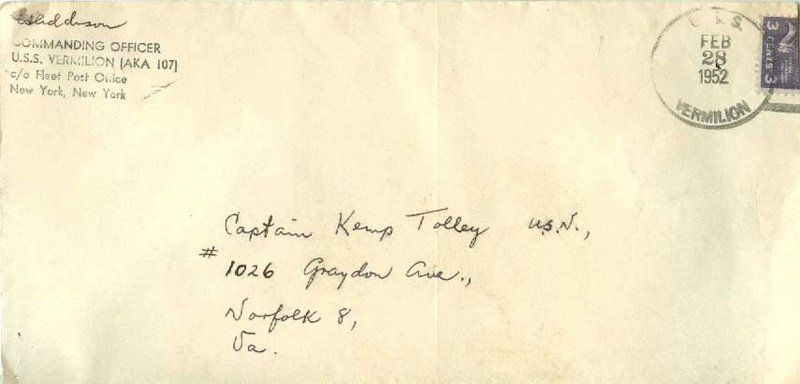 COMMANDING OFFICER
U.S.S. VERMILION (AKA 107)
c/o Fleet Post Office
New York, New York
U.S.S.
FEB
28
1952
VERMILION
3 CENTS 3
Captain Kemp Tolley U.S.N.,
# 1026 Graydon Ave.,
Norfolk 8,
Va.